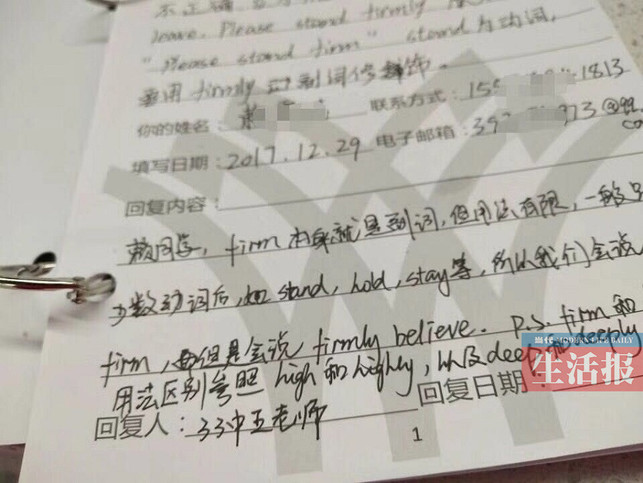 不正确,
leave. Please stand firmly
"Please stand firm" stand为动词,
要用 firmly 副词修饰。
你的姓名: 联系方式:155 1813
填写日期:2017.12.29 电子邮箱:392 973@qq.
co
回复内容:
同学, firm 本身就是副词,但用法有限,一般只
少数动词后,如 stand, hold, stay等,所以我们会说
firm, 但是会说 firmly believe. P.S. firm 和
用法区别参照 high 和 highly, 以及deep 和 deeply
回复日期
回复人:33中王老师
1
当代 MODERN LIFE DAILY
生活报